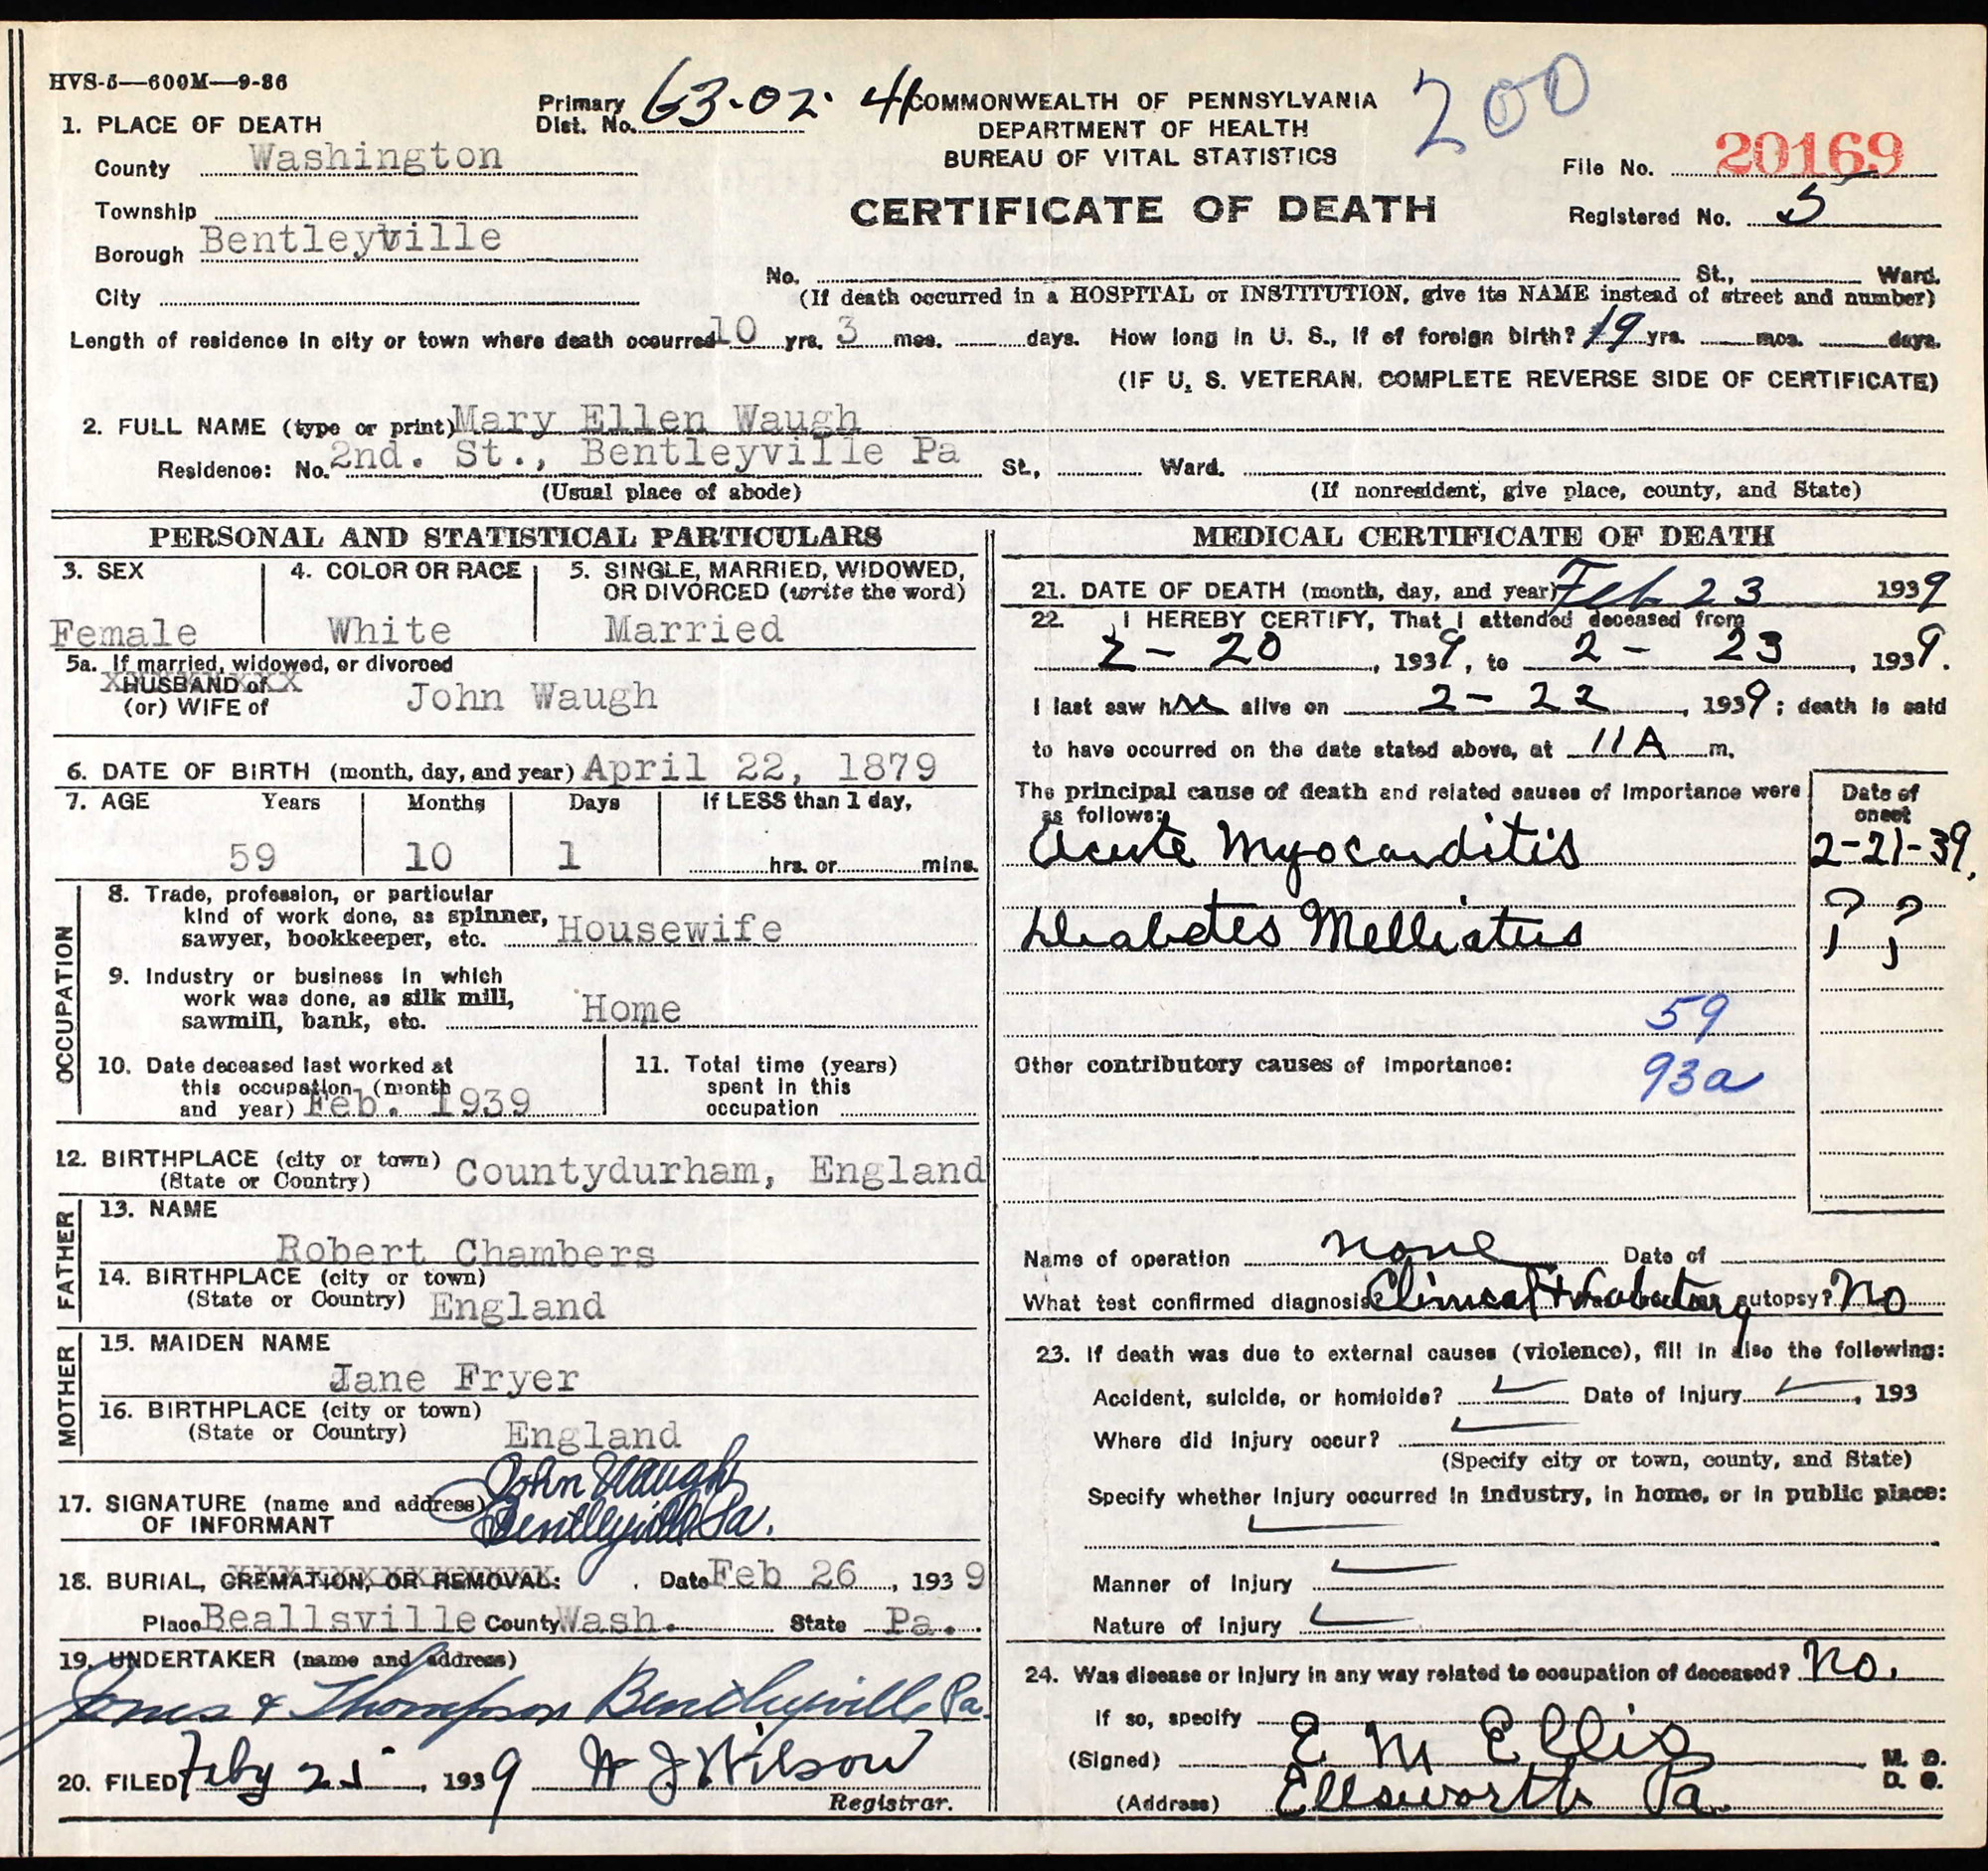 HVS-5—600M—9-36
Primary Dist. No. 63-02-41
COMMONWEALTH OF PENNSYLVANIA
DEPARTMENT OF HEALTH
BUREAU OF VITAL STATISTICS
200
CERTIFICATE OF DEATH
File No. 20169
Registered No. 5
1. PLACE OF DEATH
County Washington
Township
Borough Bentleyville
City
No. St., Ward.
(If death occurred in a HOSPITAL or INSTITUTION, give its NAME instead of street and number)
Length of residence in city or town where death occurred 10 yrs. 3 mos. days. How long in U. S., if of foreign birth? 19 yrs. mos. days.
(IF U. S. VETERAN, COMPLETE REVERSE SIDE OF CERTIFICATE)
2. FULL NAME (type or print) Mary Ellen Waugh
Residence: No. 2nd. St., Bentleyville Pa St., Ward.
(Usual place of abode) (If nonresident, give place, county, and State)
PERSONAL AND STATISTICAL PARTICULARS
3. SEX
Female
4. COLOR OR RACE
White
5. SINGLE, MARRIED, WIDOWED,
OR DIVORCED (write the word)
Married
5a. If married, widowed, or divorced
HUSBAND of
(or) WIFE of John Waugh
6. DATE OF BIRTH (month, day, and year) April 22, 1879
7. AGE Years Months Days If LESS than 1 day,
59 10 1 hrs. or mins.
OCCUPATION
8. Trade, profession, or particular
kind of work done, as spinner,
sawyer, bookkeeper, etc. Housewife
9. Industry or business in which
work was done, as silk mill,
sawmill, bank, etc. Home
10. Date deceased last worked at
this occupation (month
and year) Feb. 1939
11. Total time (years)
spent in this
occupation
12. BIRTHPLACE (city or town) Countydurham, England
(State or Country)
FATHER
13. NAME
Robert Chambers
14. BIRTHPLACE (city or town)
(State or Country) England
MOTHER
15. MAIDEN NAME
Jane Fryer
16. BIRTHPLACE (city or town)
(State or Country) England
17. SIGNATURE (name and address) John Waugh
OF INFORMANT Bentleyville Pa.
18. BURIAL, CREMATION, OR REMOVAL: Date Feb 26, 1939
Place Beallsville County Wash. State Pa.
19. UNDERTAKER (name and address)
Jones & Thompson Bentleyville Pa.
20. FILED Feby 25, 1939 W J Wilson
Registrar.
MEDICAL CERTIFICATE OF DEATH
21. DATE OF DEATH (month, day, and year) Feb 23 1939
22. I HEREBY CERTIFY, That I attended deceased from
2-20, 1939, to 2-23, 1939.
I last saw her alive on 2-22, 1939; death is said
to have occurred on the date stated above, at 11A m.
The principal cause of death and related causes of importance were
as follows:
Date of
onset
Acute Myocarditis 2-21-39.
Diabetes Mellistus ? ?
59
Other contributory causes of importance:
93a
Name of operation none Date of
What test confirmed diagnosis? Clinical & Labutory autopsy? No
23. If death was due to external causes (violence), fill in also the following:
Accident, suicide, or homicide? Date of injury , 193
Where did injury occur?
(Specify city or town, county, and State)
Specify whether injury occurred in industry, in home, or in public place:
Manner of injury
Nature of injury
24. Was disease or injury in any way related to occupation of deceased? No.
If so, specify
(Signed) E M Ellis M. D.
D. O.
(Address) Ellsworth Pa.